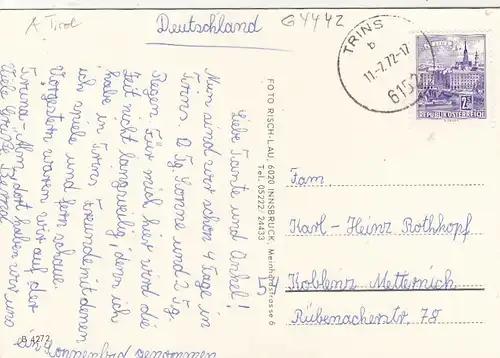 A Tirol
Deutschland
G 4442
TRINS
b
11-7.72-17
6152
2S
REPUBLIK ÖSTERREICH
Liebe Tante und Onkel!
Nun sind wir schon 4 Tage in
Trins. 2 Tg. Sonne und 2 Tg.
Regen. Für mich hier wird die
Zeit nicht langweilig, denn ich
habe in Trins Freunde mit denen
ich spiele und fern schaue.
Vorgestern waren wir auf der
Truna-Alm, dort haben wir uns
einen Sonnenbrand genommen
Viele Grüße Bernd
FOTO RISCH-LAU, 6020 INNSBRUCK, Meinhardstrasse 6
Tel. 05222, 24433
Fam.
Karl-Heinz Rothkopf
54
Koblenz Metternich
Rübenacherstr. 78
B 4272